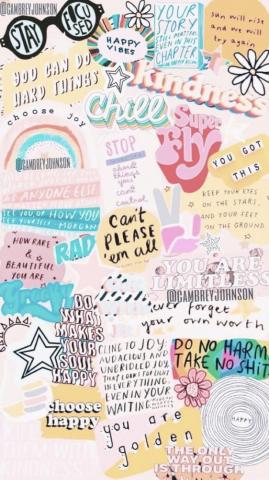 @GAMBREYJOHNSON
STAY
FOCUSED
HAPPY
VIBES
YOUR
STORY
STILL MATTERS,
EVEN IN THIS
CHAPTER.
sun will rise
and we will
try again
YOU CAN DO
HARD THINGS
kindness
Chill
choose joy
Super
Fly
@GAMBREYJOHNSON
STOP
about
things
you
can't
control
YOU GOT
THIS
AS ANYONE ELSE
KEEP YOUR EYES
ON THE STARS,
AND YOUR FEET
ON THE GROUND
Can't
PLEASE
'em all
HOW RARE
&
BEAUTIFUL
YOU ARE
RAD
YOU ARE
LIMITLESS
@GAMBREYJOHNSON
never forget
your own worth
Groovy
DO
WHAT
MAKES
YOUR
SOUL
HAPPY
CLING TO JOY:
AUDACIOUS AND
UNBRIDLED JOY,
THAT LOOKS FOR LIGHT
IN EVERYTHING,
EVEN IN YOUR
WAITING.
DO NO HARM
TAKE NO SHIT
choose
happy
HAPPY
you are
golden
THE ONLY
WAY OUT
IS THROUGH